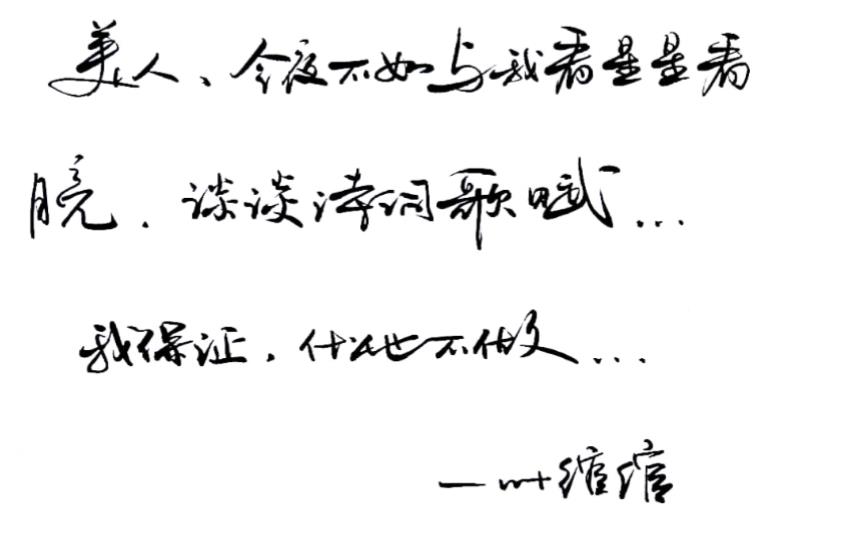 美人、今夜不如与我看星星看
月亮.谈谈诗词歌赋...
我保证,什么也不做...
—叶绾绾